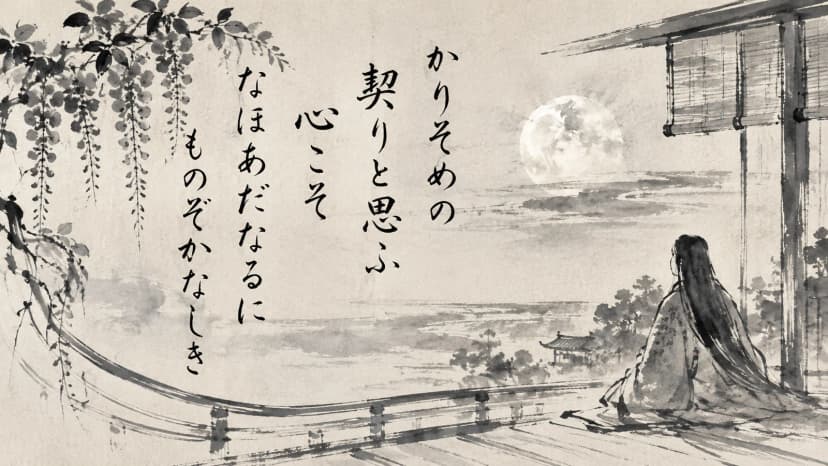 かりそめの
契りと思ふ
心こそ
なほあだなるに
ものぞかなしき